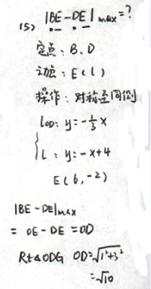 (5) |BE-DE|max=?
定点：B.D
动点：E(l)
操作：对称至同侧
lOD: y=-1/3x
l: y=-x+4
E(6,-2)
|BE-DE|max
= OE-DE=OD
Rt△ODG OD=√1²+3²
=√10